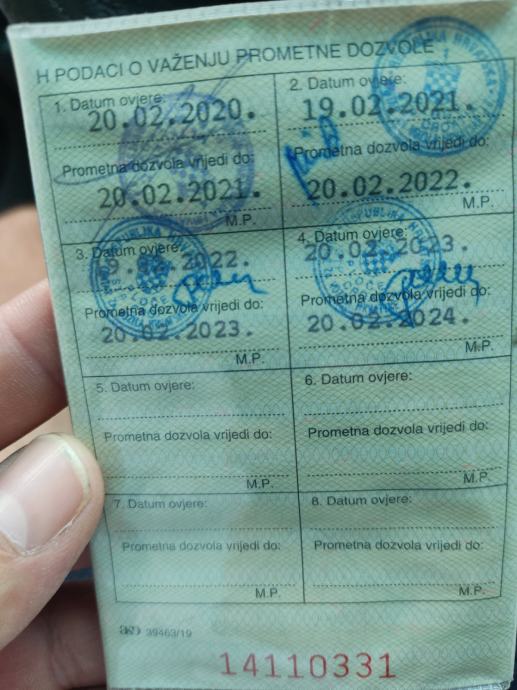 H PODACI O VAŽENJU PROMETNE DOZVOLE
1. Datum ovjere:
20.02.2020.
Prometna dozvola vrijedi do:
20.02.2021.
M.P.
2. Datum ovjere:
19.02.2021.
Prometna dozvola vrijedi do:
20.02.2022.
M.P.
3. Datum ovjere:
2022.
Prometna dozvola vrijedi do:
20.02.2023.
M.P.
4. Datum ovjere:
20.02.2023.
Prometna dozvola vrijedi do:
20.02.2024.
M.P.
5. Datum ovjere:
Prometna dozvola vrijedi do:
M.P.
6. Datum ovjere:
Prometna dozvola vrijedi do:
M.P.
7. Datum ovjere:
Prometna dozvola vrijedi do:
M.P.
8. Datum ovjere:
Prometna dozvola vrijedi do:
M.P.
39463/19
14110331